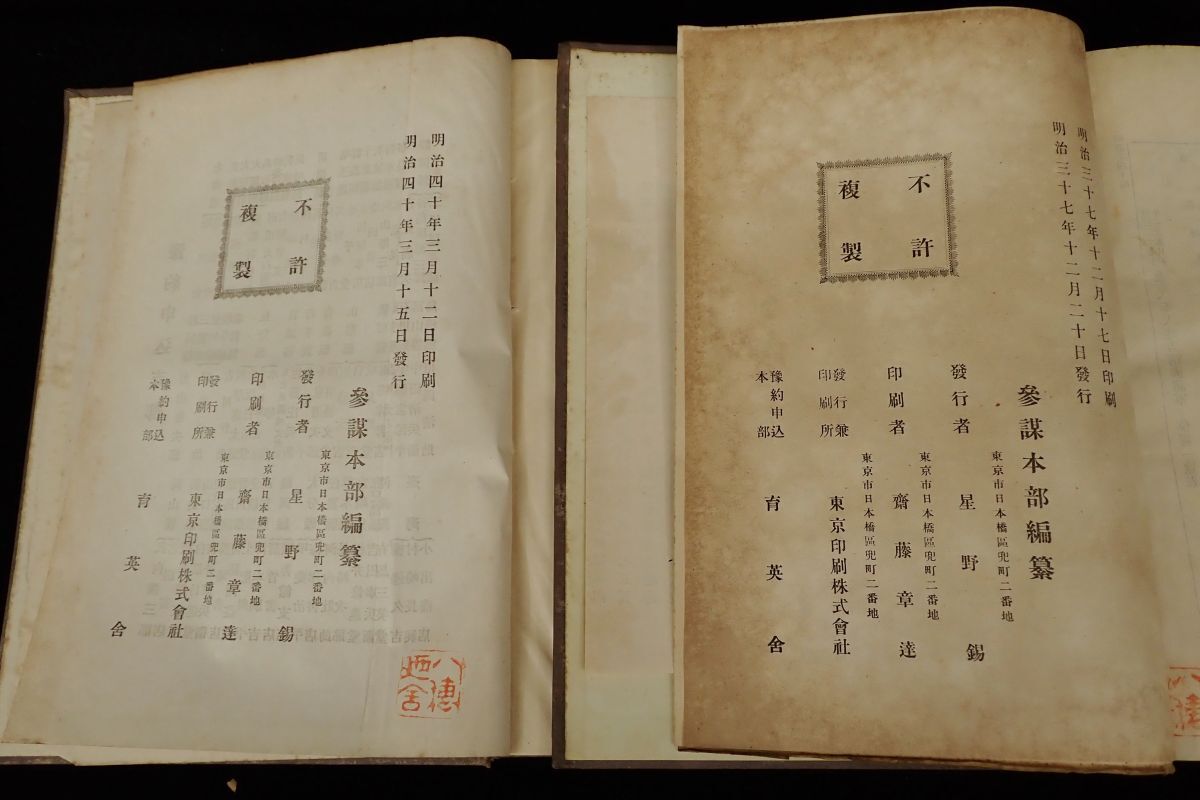 明治三十七年十二月十七日印刷
明治三十七年十二月二十日發行
不許
複製
參謀本部編纂
東京市日本橋區兜町二番地
發行者 星野錫
東京市日本橋區兜町二番地
印刷者 齋藤章達
東京市日本橋區兜町二番地
發行兼
印刷所
東京印刷株式會社
豫約申込
本部
育英舍
明治四十年三月十二日印刷
明治四十年三月十五日發行
不許
複製
參謀本部編纂
東京市日本橋區兜町二番地
發行者 星野錫
東京市日本橋區兜町二番地
印刷者 齋藤章達
東京市日本橋區兜町二番地
發行兼
印刷所
東京印刷株式會社
豫約申込
本部
育英舍